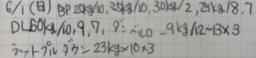 6/1(日) BP 20kg/10, 25kg/10, 30kg/2, 25kg/8.7
DL60kg/10, 9, 7, ダンベルロ -9kg/12~13×3
ラットプルダウン 23kg×10×3